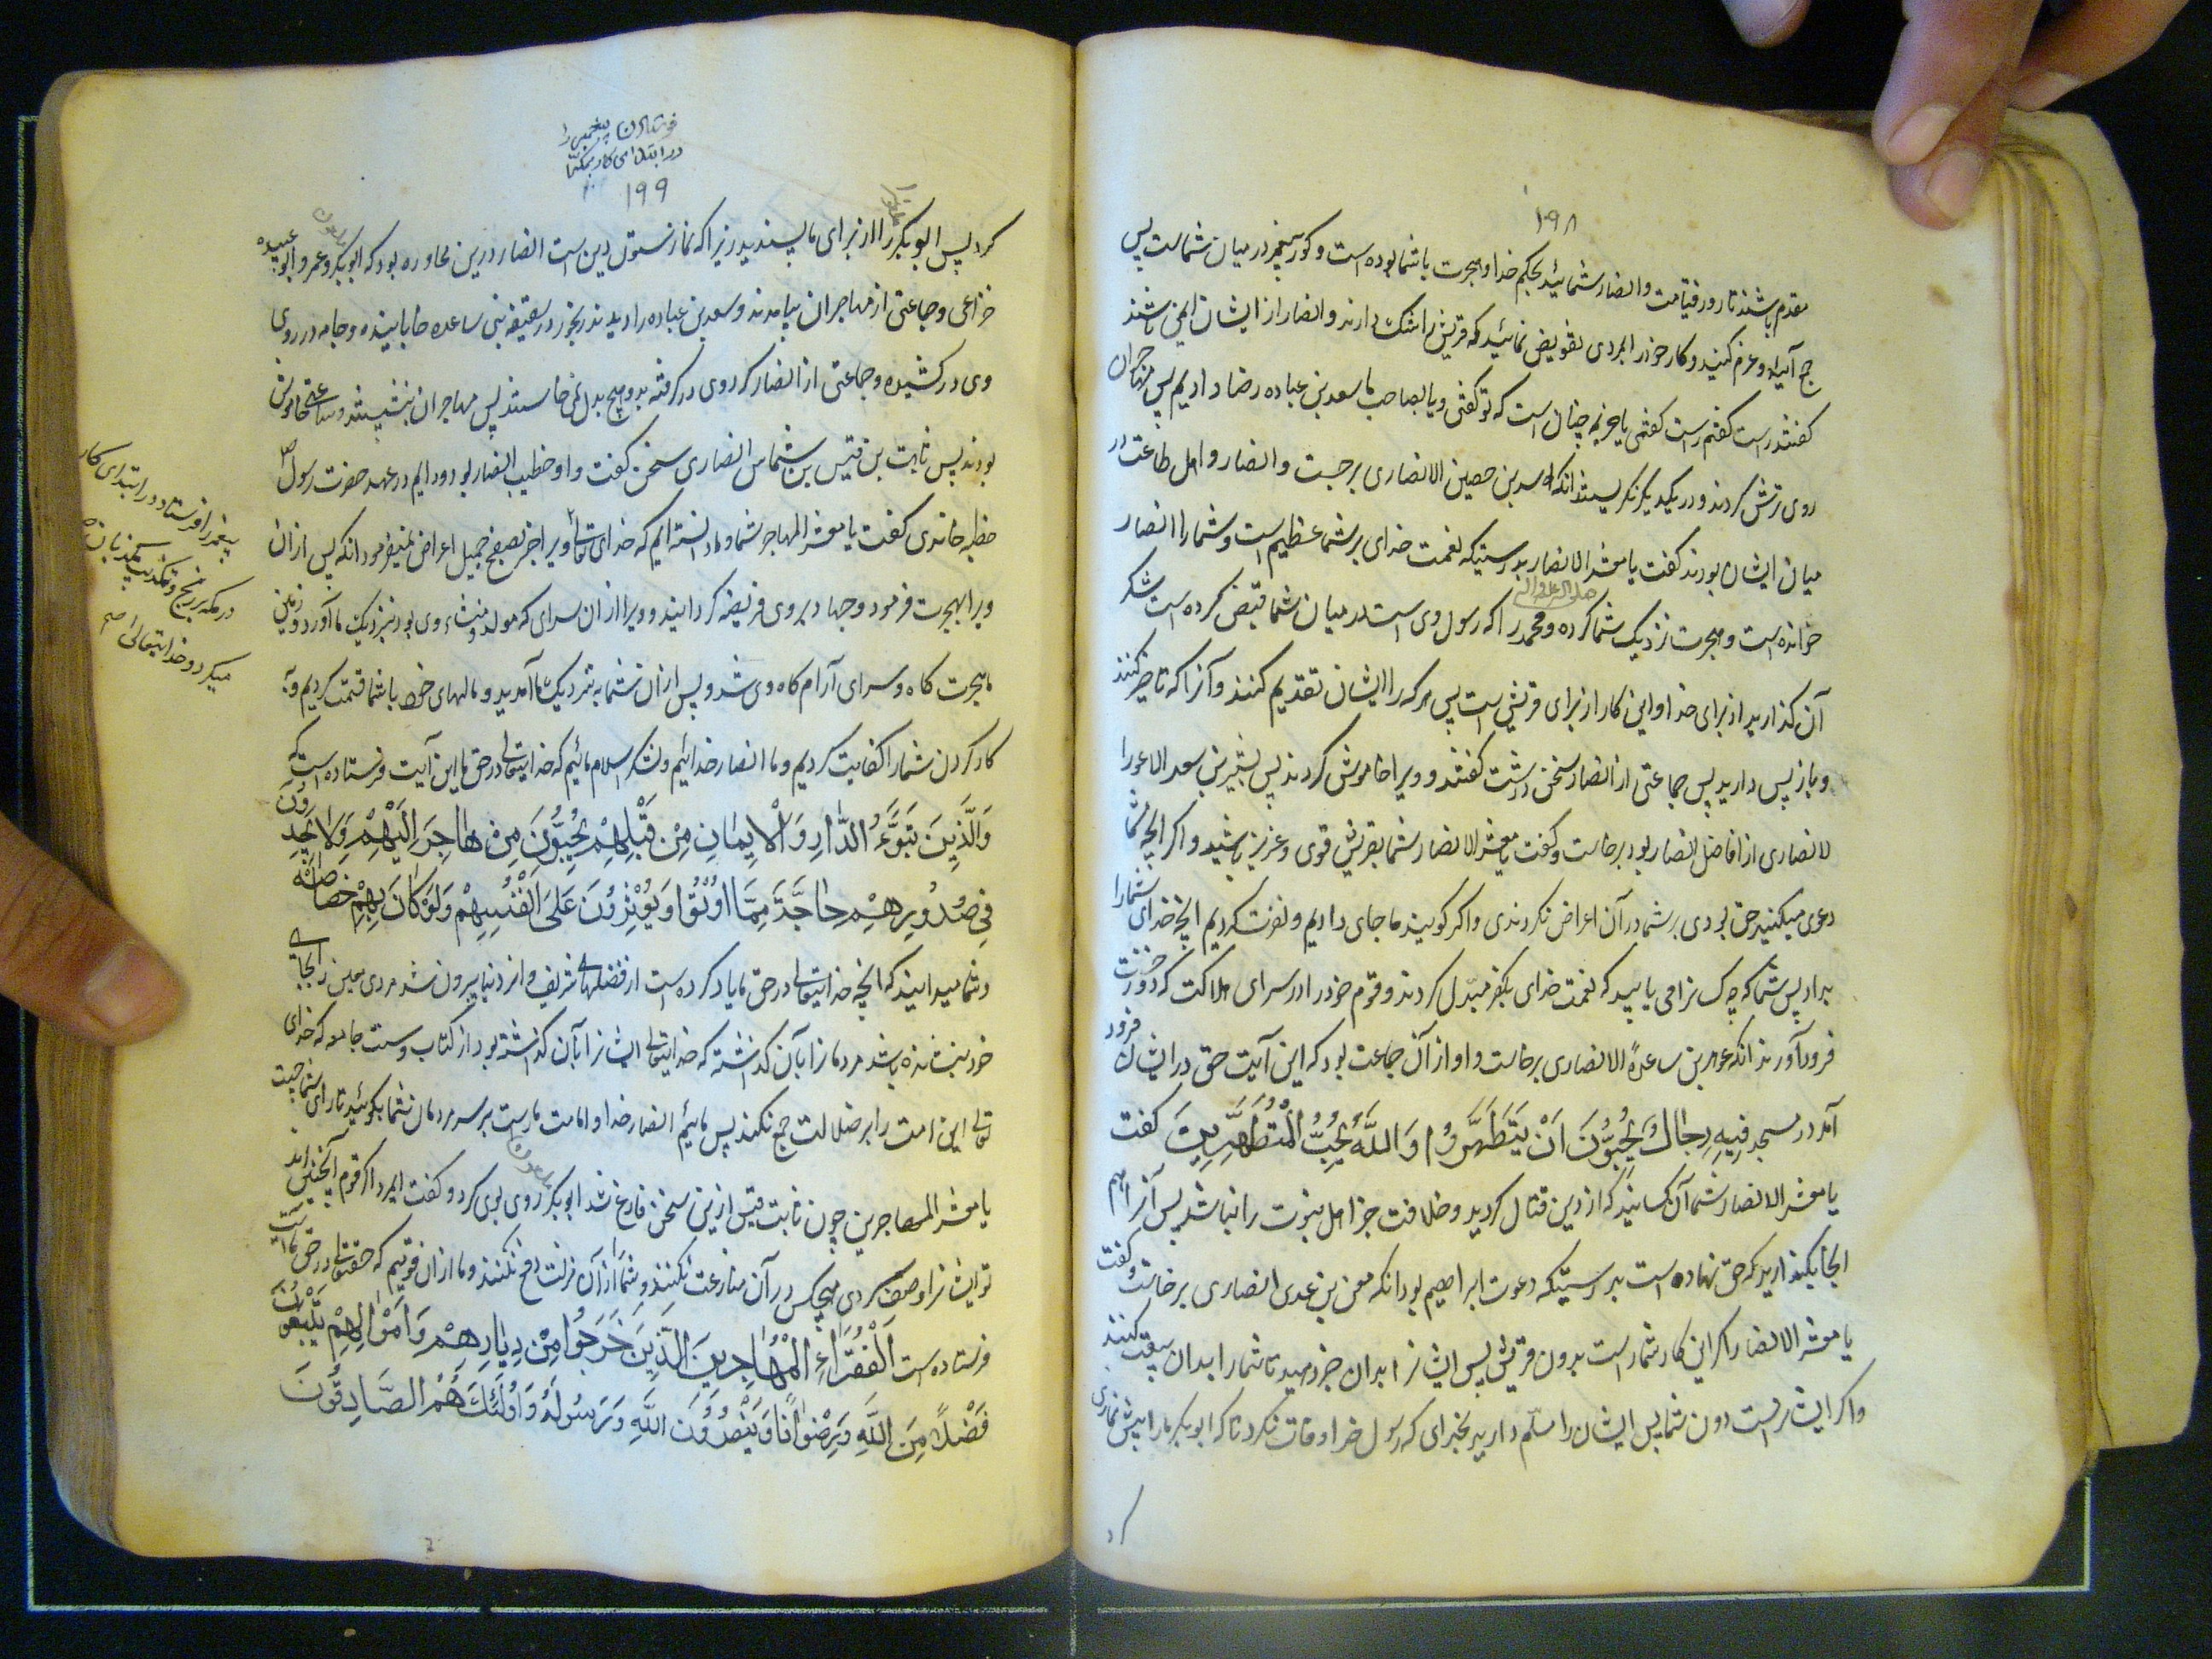 ۱۹۸
مقدم باشند تا روز قیامت و انصار شمائید بحکم خدا و هجرت با شما بوده است و کور پیغمبر در میان شماست پس
جمع آیید و عزم کنید و کار خود را بمردی تفویض نمائید که قریش را شک دارند و انصار از ایشان ایمن باشند
کفتند راست کفتی راست کفتی یا خزیمه چنان است که تو کفتی و بالصاحب ما سعد بن عباده رضا دادیم پس مهاجران
روی ترش کردند و در یکدیکر نکریستند انکه اسید بن حصین الانصاری برجست و انصار و اهل طاعت در
میان ایشان بودند کفت یا معشر الانصار بدرستیکه نعمت خدای بر شما عظیم است و شما را انصار
خوانده است و هجرت نزدیک شما کرده و محمد را صلی الله علیه و اله که رسول وی است در میان شما قبض کرده است شکر
آن کذارید از برای خدا و این کار از برای قریش است پس هر که را ایشان تقدیم کنند و آنرا که تاخیر کنند
و باز پس دارید پس جماعتی از انصار سخن درشت کفتند و ویرا خاموش کردند پس بشیر بن سعد الاعور ا
لانصاری از افاضل انصار بود برخاست و کفت یا معشر الانصار شما بقریش قوی و عزیز باشید و اکر انچه شما
دعوی میکنید حق بودی بر شما در آن اعراض نکردندی و اکر کویید ما جای دادیم و نصرت کردیم انچه خدای شما را
بداد پس شما که چه ک نزامی یابید که نعمت خدای بکفر مبدل کردند و قوم خود را در سرای هلاکت که دوزخست
فرود آورند انکه عویم بن ساعدة الانصاری برخاست و او از آن جماعت بود که این آیت حق در ایشان فرود
آمد در مسجد فِيهِ رِجَالٌ يُحِبُّونَ اَنْ يَتَطَهَّرُوا وَاللَّهُ يُحِبُّ الْمُتَطَهِّرِينَ کفت
یا معشر الانصار شما آن کسانید که از دین قتال کردید و خلافت جز اهل نبوت را نباشد پس آنرا هم
انجا بکذارید که حق نهاده است بدرستیکه دعوت ابراهیم بود انکه معن بن عدی انصاری برخاست و کفت
یا معشر الانصار اکر این کار شمار است بدون قریش پس ایشانرا بدان خبر دهید تا شما را بدان سبقت کنند
و اکر ایشانراست دون شما پس ایشان را مسلم دارید بخدای که رسول خدا وفات نکرد تا که ابوبکر ما را پیش نمازی
کرد
فرستادن پیغمبر را
در ابتدای کار بمکه
۱۹۹
کرد پس ابوبکر را از برای ما پسندید زیرا که نماز ستون دین است انصار درین محاوره بود که ابوبکر و عمر و ابو عبیده
خزاعی و جماعتی از مهاجران بیامدند و سعد بن عباده را دیدند رنجور در سقیفه بنی ساعده خابانیده و جامه در روی
وی در کشیده و جماعتی از انصار کرد وی در کرفته بدو هیچ بدل نمی خاستند پس مهاجران بنشیستند و ساعتی خاموش
بودند پس ثابت بن قیس بن شماس انصاری سخن کفت و او خطیب انصار بود و دایم در عهد حضرت رسول ص
خطبه خاندی کفت یا معشر المهاجر شما و ما دانسته ایم که خدای تعالی ویرا اخر نصفح جمیل اعراض بمیفرمود انکه پس ازان
ویرا بهجرت فرمود و جهاد بر وی فریضه کردانید و ویرا ازان سرای که مولد و منشاء وی بود بنزدیک ما آورد و زمین
ما هجرت کاه و سرای آرام کاه وی شد و پس ازان شما به نزدیک ما آمدید و مالهای خود با شما قسمت کردیم و به
کار کردن شما را کفایت کردیم و ما انصار خدائیم و لشکر اسلام مائیم که خدایتعالی در حق ما این آیت فرستاده است که
وَالَّذِينَ تَبَوَّءُ الدَّارَ وَالْاِيمَانَ مِنْ قَبْلِهِمْ يُحِبُّونَ مِنْ هَاجَرَ اِلَيْهِمْ وَلَا يَجِدُونَ
فِي صُدُورِهِمْ حَاجَةً مِمَّا اوُتُوا وَيُؤْثِرُونَ عَلَى اَنْفُسِهِمْ وَلَوْ كَانَ بِهِمْ خَصَاصَةٌ
و شما میدانید که انچه خدایتعالی در حق ما یاد کرده است از فضلهای شریف و از دنیا بیرون نشد مردی معین را بجای
خود بنشانده باشد مردمانرا بآن کذاشته که خدایتعالی ایشانرا بآن کذاشته بود از کتاب و سنت جامعه که خدای
تعالی این امت را بر ضلالت جمع نکند پس مائیم انصار خدا و امامت ماراست بر سر مردمان شما بکوئید تا رای شما چیست
یا معشر المهاجرین چون ثابت قیس ازین سخن فارغ شد ابوبکر روی بوی کرد و کفت ایمرد اکر قوم آنچنین اند
تو ایشانرا وصف کردی هیچکس در آن منازعت نکنند و شما را از آن منزلت دفع نکنند و ما ازان قومیم که حقتعالی در حق ما آیت
فرستاده است اَلْفُقَرَاءِ الْمُهَاجِرِينَ الَّذِينَ خَرَجُوا مِنْ دِيَارِهِمْ وَاَمْوَالِهِمْ يَبْتَغُونَ
فَضْلًا مِنَ اللَّهِ وَرِضْوَانًا وَيَنْصُرُونَ اللَّهَ وَرَسُولَهُ وَاُولَئِكَ هُمُ الصَّادِقُونَ
پیغمبر را فرستاد در ابتدای کار
در مکه بر رنج و تکذیب
میکرد و خدایتعالی صح